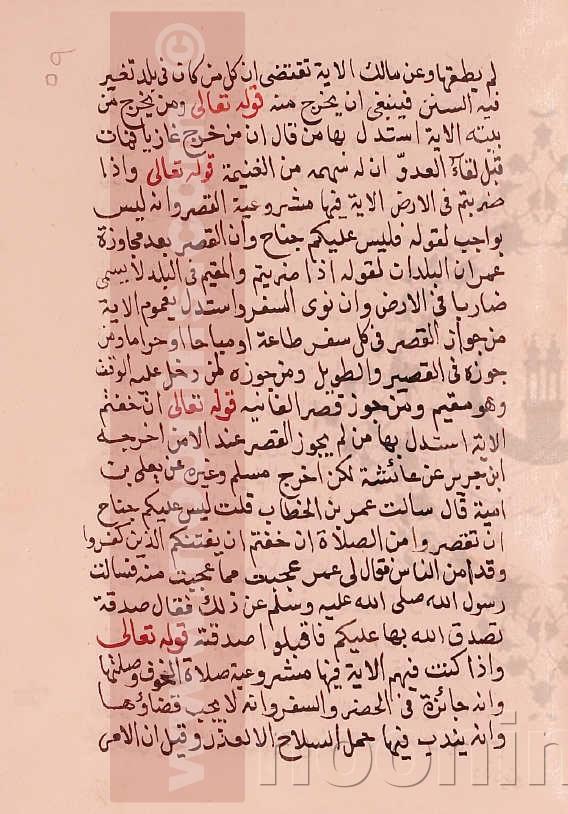 ٥٩
لم يطقها وعن مالك الاية تقتضى ان كل من كان فى بلد تغير
فيه السنن فينبغى ان يخرج منه قوله تعالى ومن يخرج من
بيته الاية استدل بها من قال ان من خرج غازيا فمات
قبل لقاء العدوّ ان له سهمه من الغنيمة قوله تعالى واذا
ضربتم فى الارض الاية فيها مشروعية القصر وانه ليس
بواجب لقوله فليس عليكم جناح وان القصر بعد مجاوزة
عمران البلدات لقوله اذا ضربتم والمقيم فى البلد لا يسمى
ضاربا فى الارض وان نوى السفر واستدل بعموم الاية
من جواز القصر فى كل سفر طاعة او مباحا او حراما ومن
جوزه فى القصير والطويل ومن جوزه لمن دخل عليه الوقت
وهو مقيم ومن جوز قصر الفائتة قوله تعالى ان خفتم
الاية استدل بها من لم يجوز القصر عند الامن اخرجه
ابن جرير عن عائشة لكن اخرج مسلم وغيره عن يعلى بن
امية قال سالت عمر بن الخطاب قلت ليس عليكم جناح
ان تقصروا من الصلاة ان خفتم ان يفتنكم الذين كفروا
وقد امن الناس فقال لى عمر عجبت مما عجبت منه فسالت
رسول الله صلى الله عليه وسلم عن ذلك فقال صدقة
تصدق الله بها عليكم فاقبلوا صدقته قوله تعالى
واذا كنت فيهم الاية فيها مشروعية صلاة الخوف وصفتها
وانه جائزة فى الحضر والسفر وانه لا يجب قضاؤها
وانه يندب فيها حمل السلاح الا لعذر وقيل ان الامر
noorin